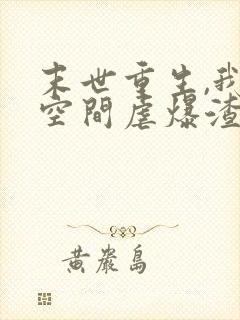 末世重生,我
空間虐爆渣
黃巖島